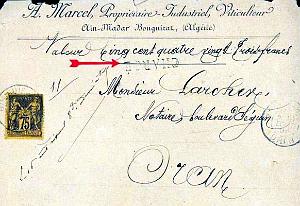 A. Marcel, Propriétaire-Industriel, Viticulteur
Aïn-Madar Bouguirat, (Algérie)
Valeur cinq cent quatre vingt trois francs
CHARGÉ
Monsieur Larcher,
75
Notaire, boulevard Séguin,
Oran